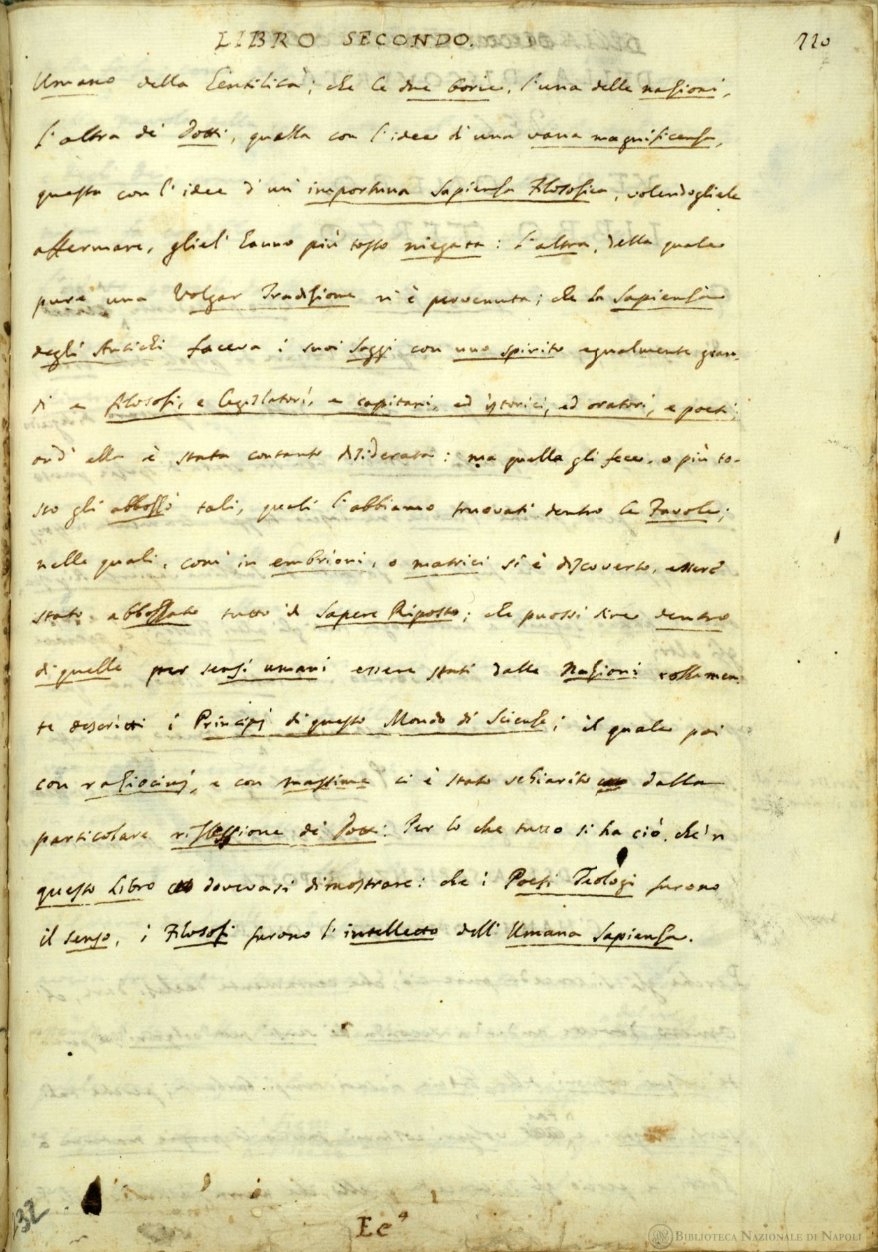 LIBRO SECONDO.
220
Umano della Gentilità; che le due borie, l'una delle nazioni,
l'altra de' Dotti, quella con l'idee di una vana magnificenza,
questa con l'idee d'un' importuna Sapienza Filosofica, volendogliele
affermare, gliel' hanno più tosto niegata: l'altra, della quale
pure una Volgar Tradizione n'è pervenuta; che la Sapienza
degli Antichi faceva i suoi Saggi con uno spirito egualmente gran-
di e filosofi, e legislatori, e capitani, ed istorici, ed oratori, e poeti;
ond' ella è stata cotanto disiderata: ma quella gli fece, o più to-
sto gli abbozzò tali, quali l'abbiamo truovati dentro le Favole;
nelle quali, com' in embrioni, o matrici si è discoverto, essere
stato abbozzato tutto il Sapere Riposto; che puossi dire dentro
di quelle per sensi umani essere stati dalle Nazioni rozzamen-
te descritti i Principj di questo Mondo di Scienze; il quale poi
con raziocinj, e con massime ci è stato schiarito dalla
particolare riflessione de' Dotti: Per lo che tutto si ha ciò, che'n
questo Libro dovevasi dimostrare: che i Poeti Teologi furono
il senso, i Filosofi furono l'intelletto dell' Umana Sapienza.
Ee
32
BIBLIOTECA NAZIONALE DI NAPOLI